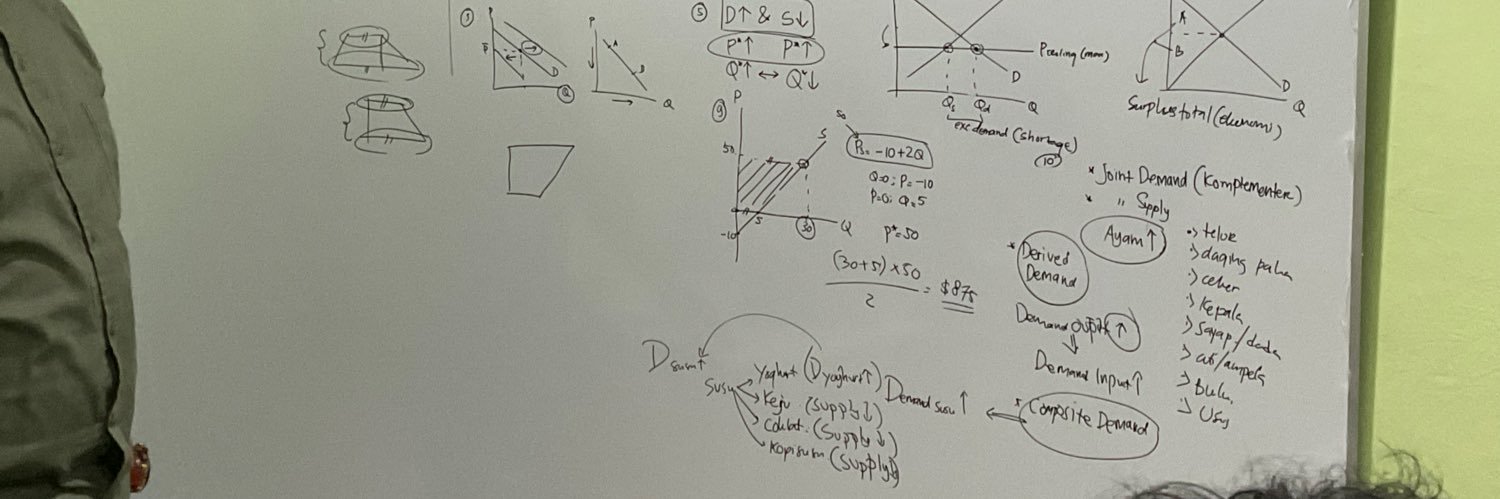 ①
P
D
Q
P
A
Q
⑤ D↑ & S↓
P*↑ P*↑
Q*↑ ↔ Q*↓
P ceiling (max)
D
Qs Qd Q
exc demand (shortage)
(10)
A
B
D
Q
Surplus total (ekonomi)
⑨
P
50
S
5
-10
30
Q
50
Ps = -10+2Q
Q=0; P=-10
P=0; Q=5
P*=50
(30+5) x 50
2
= $875
* Joint Demand (Komplementer)
* " Supply
Ayam↑
-> telur
-> daging paha
-> ceker
-> Kepala
-> Sayap/dada
-> ati/ampela
-> Bulu
-> Usus
* Derived Demand
Demand output ↑
⇓
Demand Input ↑
* Composite Demand
⇐
Demand susu ↑
D susu↑
Susu
Yoghurt (D yoghurt↑)
Keju (Supply↓)
Coklat (Supply↓)
Kopi susu (Supply↓)